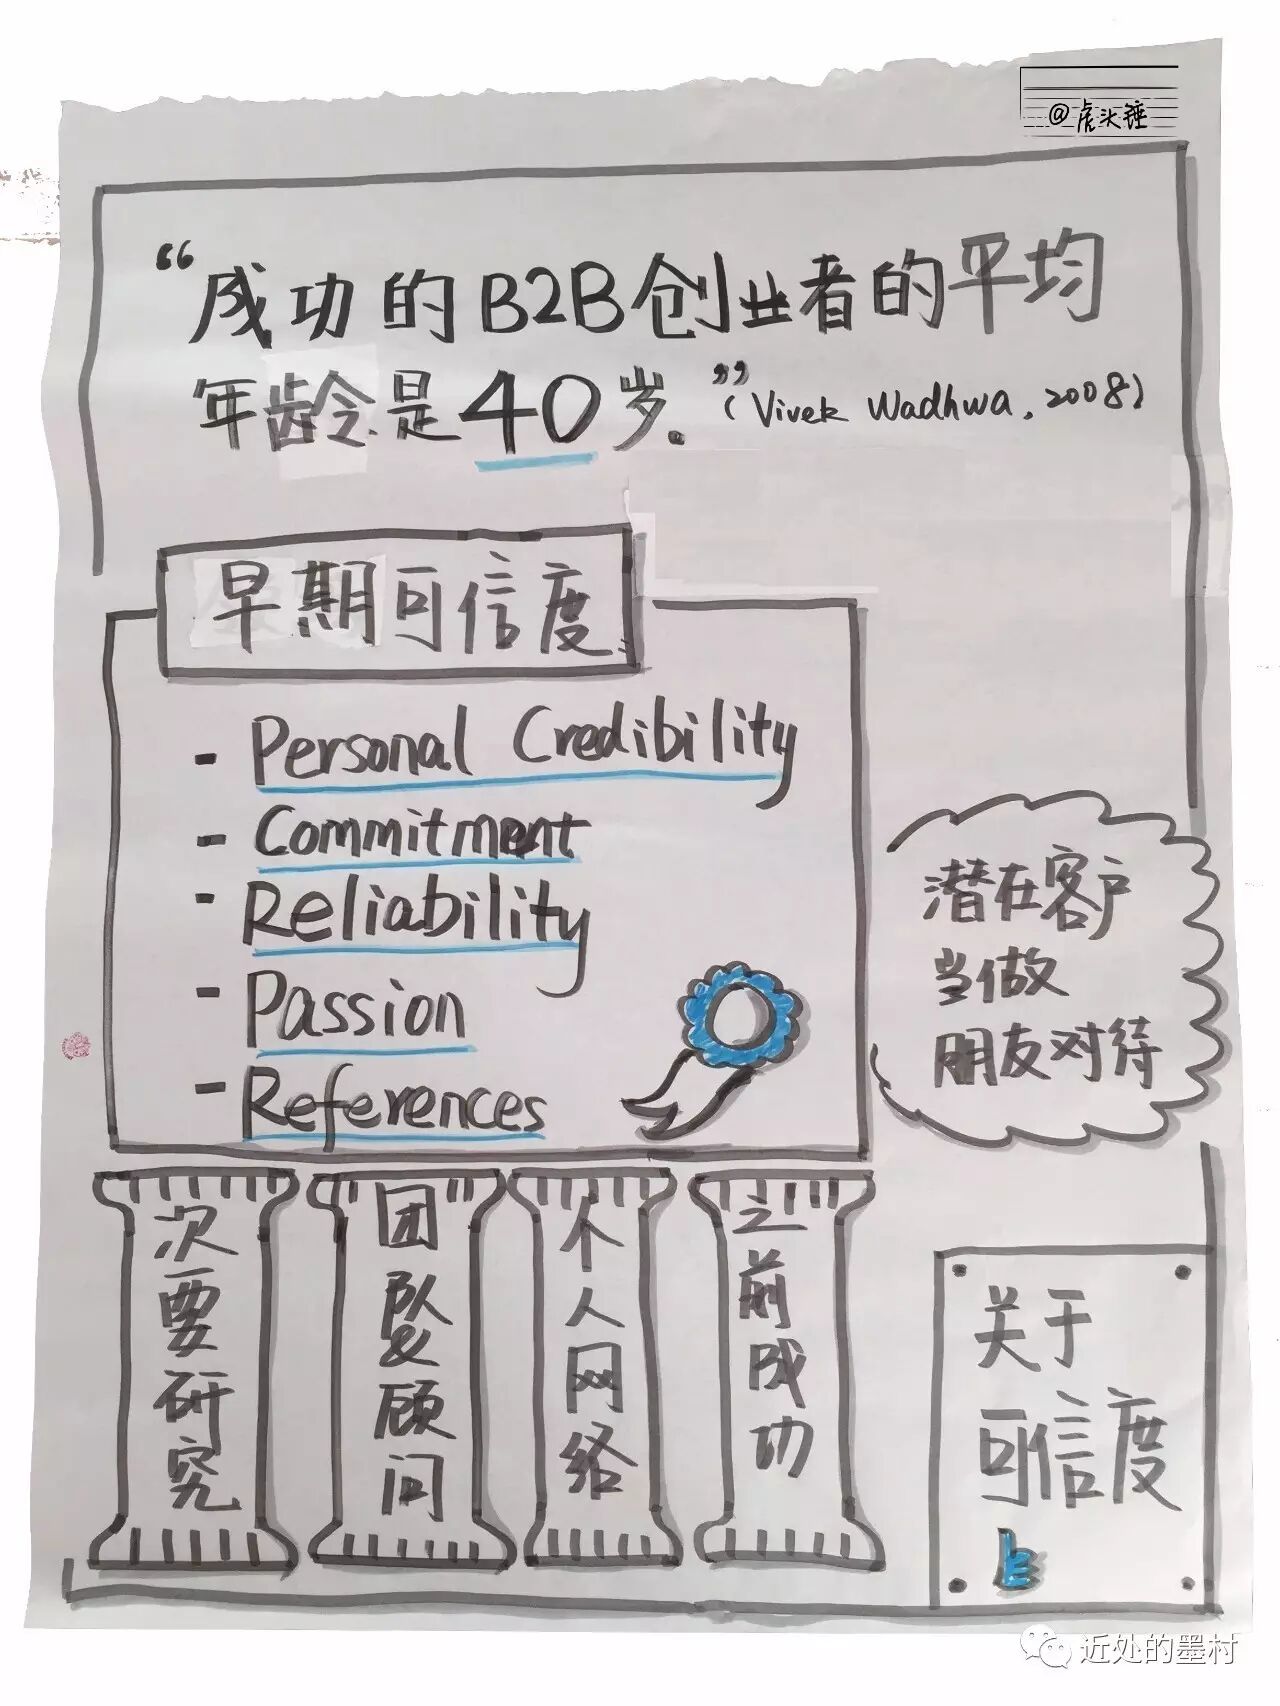 @虎头锤
“成功的B2B创业者的平均
年龄是40岁.”(Vivek Wadhwa, 2008)
早期可信度
- Personal Credibility
- Commitment
- Reliability
- Passion
- References
潜在客户
当做
朋友对待
次要研究
团队顾问
个人网络
之前成功
关于
可信度
近处的墨村